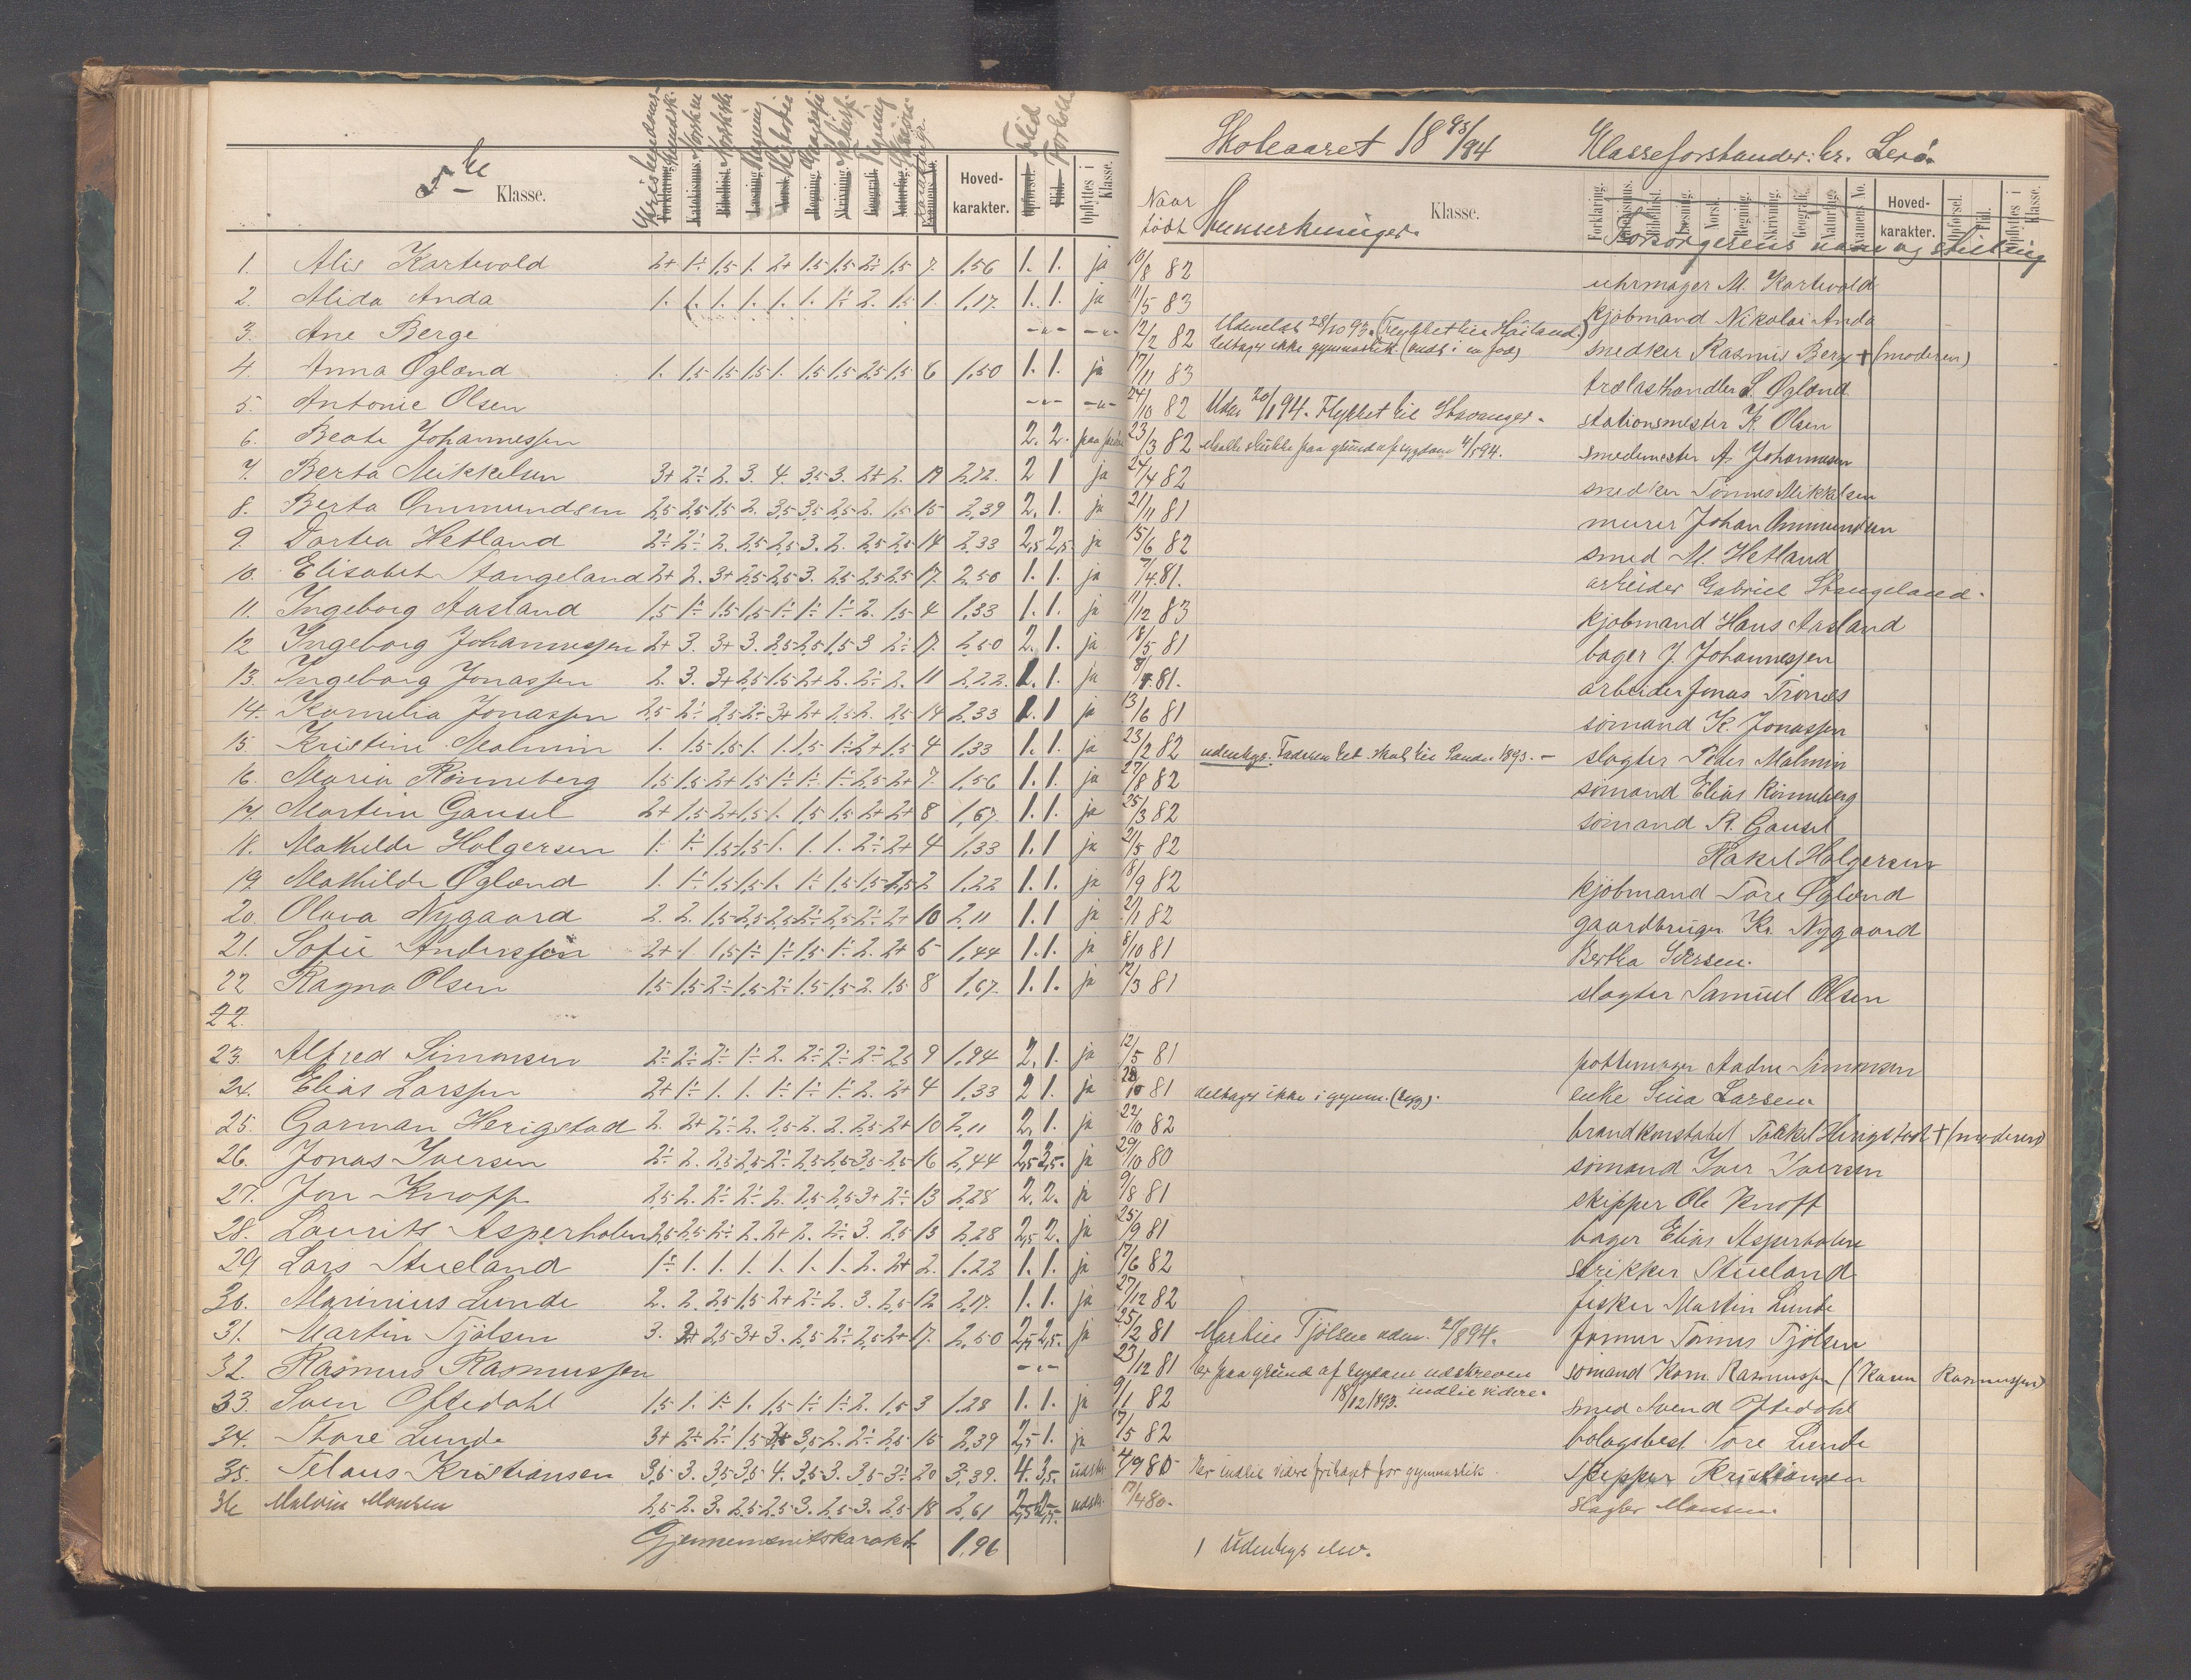 5te Klasse.
Hoved-karakter.
Flid
Forhold
Opflyttes i Klasse.
Skoleaaret 1893/94 Klasseforstander: hr. Lerö.
Naar födt Anmerkninger. Klasse. Forsörgerens navn og stilling
1. Alis Kartevold 2+ 1÷ 1,5 1. 2+ 1,5 1,5 2÷ 1,5 7. 1,56 1. 1. ja 10/8 82 uhrmager M. Kartevold
2. Alida Anda 1. 1. 1. 1. 1. 1. 1÷ 2. 1,5 1. 1,17. 1. 1. ja 11/5 83 kjöbmand Nikolai Anda
3. Ane Berge -"- -"- 12/2 82 Udmeldt 28/10 93. (Flyttet til Haaland.) deltager ikke gymnastik. (vondt i en fod) snedker Rasmus Berge + (moderen)
4. Anna Øglænd 1. 1,5 1,5 1,5 1. 1,5 1,5 2,5 1,5 6 1,50 1. 1. ja 17/11 83 trælasthandler S. Øglænd
5. Antonie Olsen -"- -"- 24/10 82 Udm 20/1 94. Flyttet til Stavanger. stationsmester K. Olsen
6. Beate Johannessen 2. 2. paa pröve 23/3 82 maatte slutte paa grund af sygdom 4/5 94. smedemester A. Johannesen
7. Berta Mikkelsen 3+ 2÷ 2. 3. 4. 3,5 3. 2+ 2. 19 2,72. 2 1 ja 24/4 82 snedker Tönnes Mikkelsen
8. Berta Ommundsen 2,5 2,5 1,5 2. 3,5 3,5 2,5 2. 1,5 15 2,39 2. 1. ja 21/11 81 murer Johan Ommundsen
9. Dortea Hetland 2÷ 2÷ 2. 2,5 2,5 3. 2. 2,5 2,5 14 2,33 2,5 2,5 ja 15/6 82 smed M. Hetland
10. Elisabet Stangeland 2+ 2. 3+ 2,5 2,5 3. 2,5 2,5 2,5 17. 2,50 1. 1. ja 7/4 81. arbeider Gabriel Stangeland.
11. Ingeborg Aasland 1,5 1÷ 1,5 1,5 1÷ 1÷ 1÷ 2. 1,5 4 1,33 1. 1. ja 11/12 83 kjöbmand Hans Aasland
12 Ingeborg Johannessen 2+ 3. 3+ 3. 2,5 2,5 1,5 3 2÷ 17. 2,50 2. 1. ja 18/5 81 bager J. Johannessen
13. Ingeborg Jonassen 2. 3. 3+ 2,5 1,5 2+ 2. 2÷ 2. 11 2,22. 1. 1. ja 81. arbeider Jonas Tronæs
14. Kornelia Jonassen 2,5 2÷ 2,5 2÷ 3+ 2+ 2,5 2. 2,5 14 2,33 1. 1 ja 13/6 81 sömand K. Jonassen
15. Kristine Malmin 1. 1,5 1,5 1. 1. 1,5 1÷ 2+ 1,5 4 1,33 1. 1. ja 23/2 82 udenbys. Faderen bet. skat til Sandn. 1893. slagter Peder Malmin
16. Maria Rönneberg 1,5 1,5 2+ 1,5 1÷ 1÷ 1÷ 2,5 2+ 7. 1,56 1. 1. ja 27/8 82 sömand Elias Rönneberg
17. Martine Gausel 2+ 1,5 2+ 1,5 1. 1,5 1,5 2+ 2+ 8 1,67. 1. 1. ja 25/3 82 sömand R. Gausel
18. Mathilde Holgersen 1. 1÷ 1,5 1,5 1. 1. 1. 2÷ 2+ 4 1,33 1. 1 ja 21/5 82 Rakel Holgersen
19. Mathilde Øglænd 1. 1÷ 1,5 1,5 1. 1÷ 1,5 1,5 2,5 2 1,22 1. 1. ja 18/9 82 kjöbmand Tore Øglænd
20. Olava Nygaard 2. 2. 1,5 2,5 2,5 2÷ 2,5 2÷ 2+ 10 2,11 1. 1 ja 2/1 82 gaardbruger Kr. Nygaard
21. Sofie Anderssen 2+ 1 1,5 1÷ 1÷ 1,5 1÷ 2. 2+ 5 1,44 1. 1. ja 8/10 81 Bertha Iversen.
22 Ragna Olsen 1,5 1,5 2÷ 1,5 2÷ 1,5 1,5 2. 1,5 8 1,67. 1. 1. ja 12/3 81 slagter Samuel Olsen
22.
23. Alfred Simonsen 2÷ 2÷ 2÷ 1÷ 2. 2÷ 2÷ 2÷ 2,5 9 1,94 2. 1. ja 12/5 81 pottemager Andr. Simonsen
24. Elias Larssen 2+ 1÷ 1. 1. 1÷ 1÷ 1÷ 2. 2+ 4 1,33 2 1. ja 28/10 81 deltager ikke i gymn. (syg). enke Sina Larsen
25. Garman Herigstad 2. 2+ 2÷ 2. 2,5 2. 2. 2,5 2+ 10 2,11 2. 1. ja 22/10 82 brandkonstabel Torkel Herigstad + (moderen)
26. Jonas Iversen 2÷ 2. 2,5 2,5 2÷ 2,5 2,5 3,5 2,5 16 2,44 2,5 2,5. ja 29/10 80 sömand Iver Iversen
27. Jon Knoff 2,5 2. 2÷ 2÷ 2. 2,5 2,5 3+ 2÷ 13 2,28 2. 2. ja 9/8 81 skipper Ole Knoff
28. Laurits Asperholm 2,5 2,5 2÷ 2. 2+ 2. 2÷ 3. 2,5 13 2,28 2,5 2. ja 25/9 81 bager Elias Asperholm
29 Lars Stueland 1÷ 1. 1. 1. 1. 1. 1. 2. 2+ 2. 1.22 1. 1. ja 17/6 82 strikker Stueland
30. Marinius Lunde 2. 2. 2,5 1,5 2+ 2÷ 2. 3. 2,5 12 2,17. 1. 1. ja 27/12 82 fisker Martin Lunde
31. Martin Tjölsen 3. 2+ 2,5 3+ 3. 2,5 2÷ 2,5 2+ 17. 2,50 2,5 2,5. ja 25/2 81 Martin Tjölsen udm. 21/8 94. former Tönnes Tjölsen
32. Rasmus Rasmussen -"- 23/12 81 Er paa grund af sygdom udskreven indtil videre. 18/12 1893. sömand Korn. Rasmussen (Karen Rasmussen)
33. Sven Oftedahl 1,5 1. 1÷ 1. 1,5 1÷ 1÷ 2. 1,5 3 1,28 1. 1. ja 9/1 82 smed Svend Oftedahl
34. Thore Lunde 3+ 2÷ 2÷ 1,5 3,5 3,5 2. 2÷ 2,5 15 2,39 2,5 1. ja 17/5 82 bolagsbest. Tore Lunde
35. Telaus Kristiansen 3,5 3. 3,5 3,5 4. 3,5 3. 3,5 3÷ 20 3,39. 4. 3,5. udskr. 4/9 80 Er indtil videre fritaget for gymnastik skipper Kristiansen
36 Malvin Monsen 2,5 2. 3. 2,5 2,5 3. 2,5 3. 2,5 18 2,61 2,5 2,5. udskr. 17/4 80. slagter Monsen.
Gjennemsnitskarakt. 1,96
1 Udenbys elev.